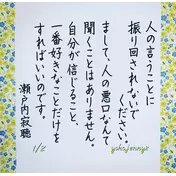 人の言うことに
振り回されないで
ください。
まして、人の悪口なんて
聞くことはありません。
自分が信じること、
一番好きなことだけを
すればいいのです。
瀬戸内寂聴
1/8